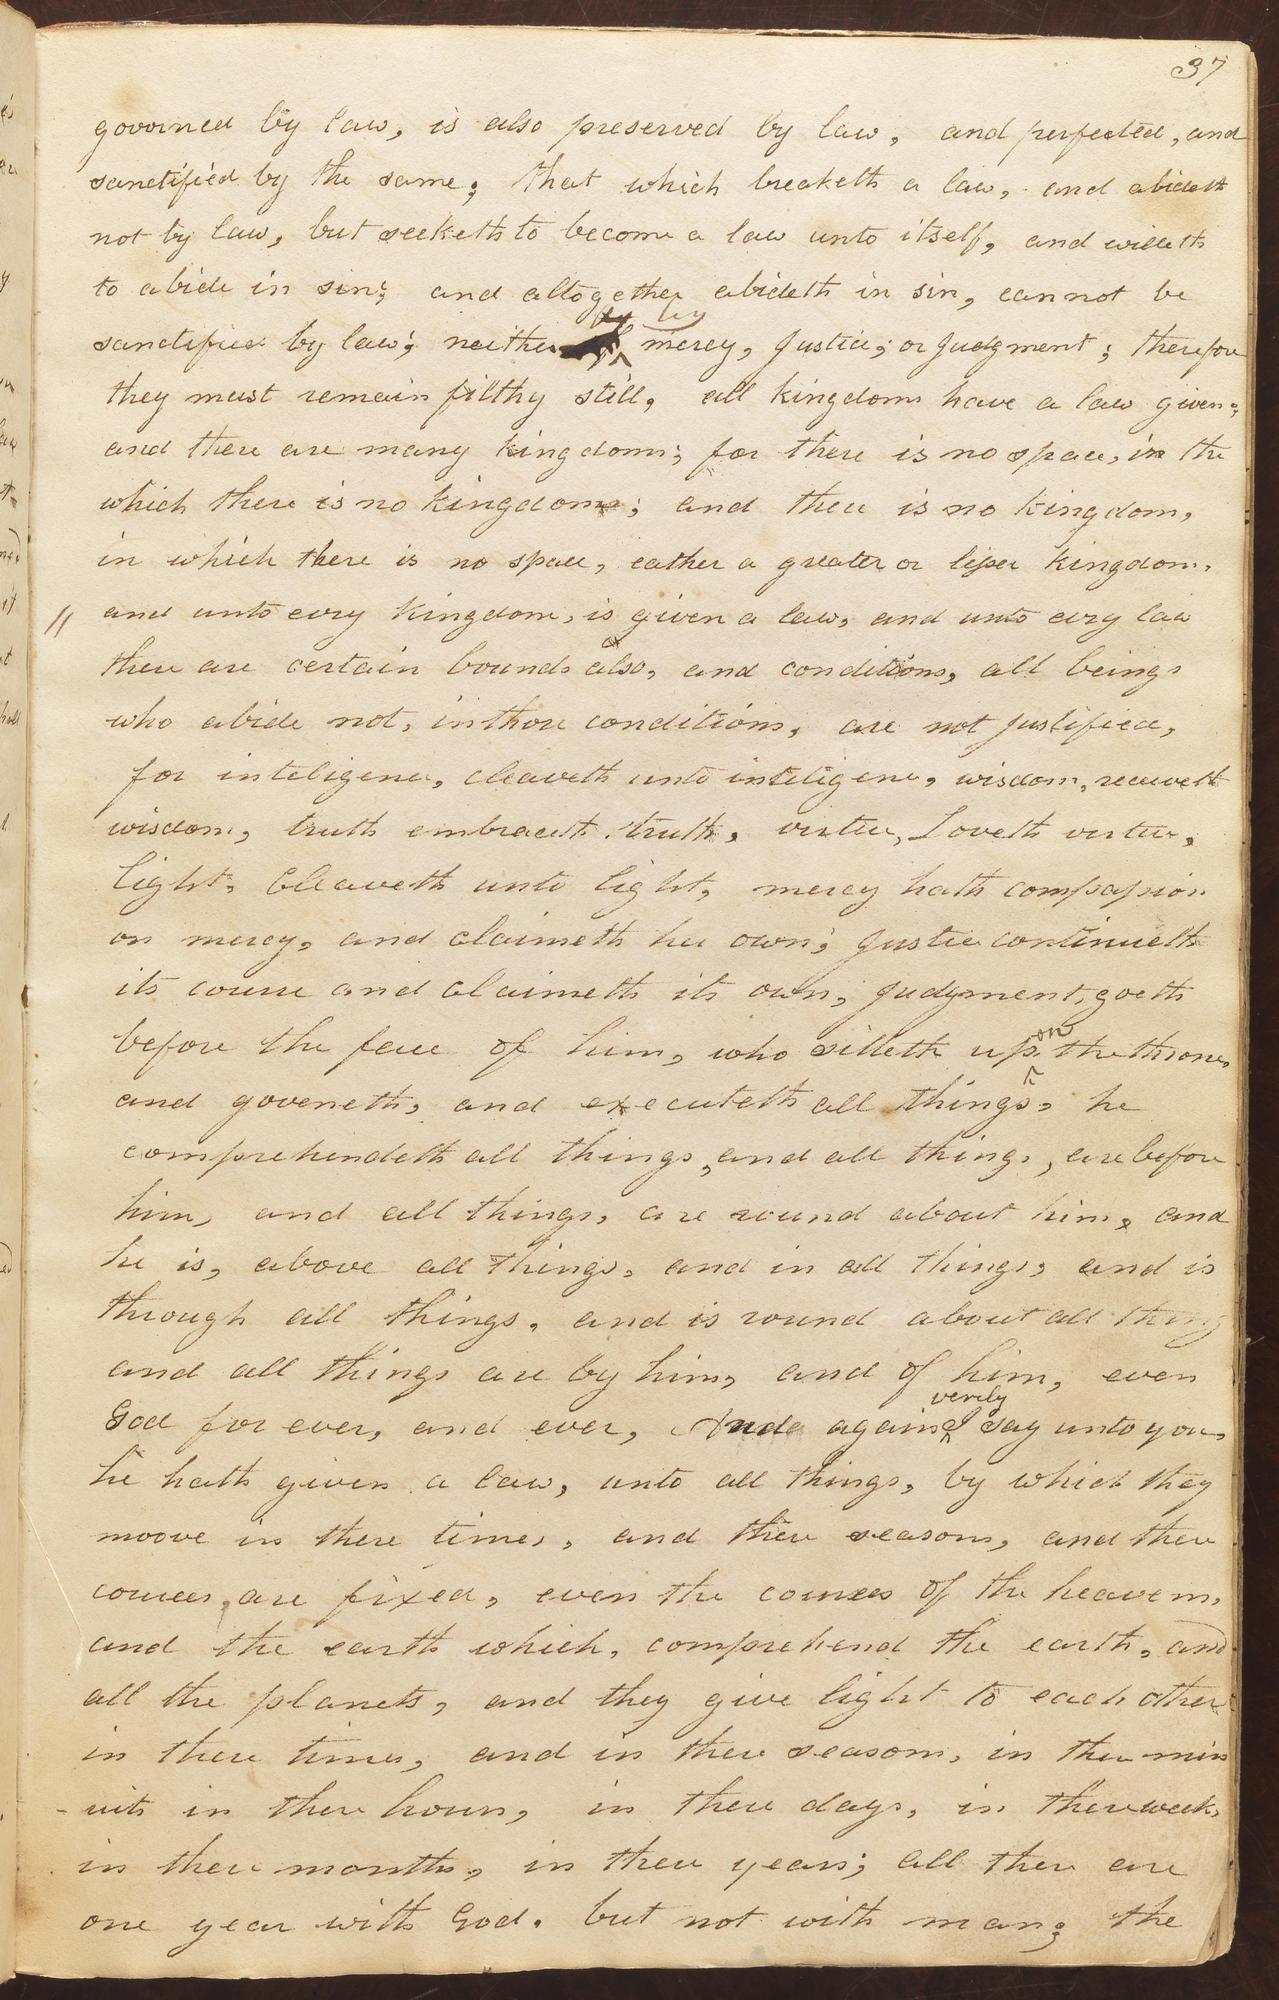 37
governed by law, is also preserved by law, and perfected, and
sanctified by the same; that which breaketh a law, and abideth
not by law, but seeketh to become a law unto itself, and willeth
to abide in sin; and altogether abideth in sin, cannot be
sanctified by law; neither by mercy, Justice; or Judgment; therefore
they must remain filthy still, all kingdoms have a law given;
and there are many kingdoms; for there is no space, in the
which there is no kingdom; and there is no kingdom,
in which there is no space, eather a greater or lesser kingdom.
and unto evry kingdom, is given a law, and unto evry law
there are certain bounds also, and conditions, all beings
who abide not, in those conditions, are not Justified,
for inteligence, cleaveth unto inteligence, wisdom, receiveth
wisdom, truth embraceth truth, virtue, Loveth virtue,
light, Cleaveth unto light, mercy hath compassion
on mercy, and claimeth her own; Justice continueth
its course and claimeth its own, Judgment, goeth
before the face of him, who sitteth upon the throne,
and goveneth, and executeth all things, he
comprehendeth all things, and all things, are before
him, and all things, are round about him, and
he is, above all things, and in all things, and is
through all things, and is round about all thing
and all things are by him, and of him, even
God for ever, and ever, And again verily I say unto you,
he hath given a law, unto all things, by which they
moove in there times, and there seasons, and there
cources, are fixed, even the cources of the heavens,
and the earth which, comprehend the earth, and
all the planets, and they give light to each other
in there times, and in there seasons, in there min
-uits in there hours, in there days, in there weeks,
in there months, in there years; all these are
one year with God. but not with man; the